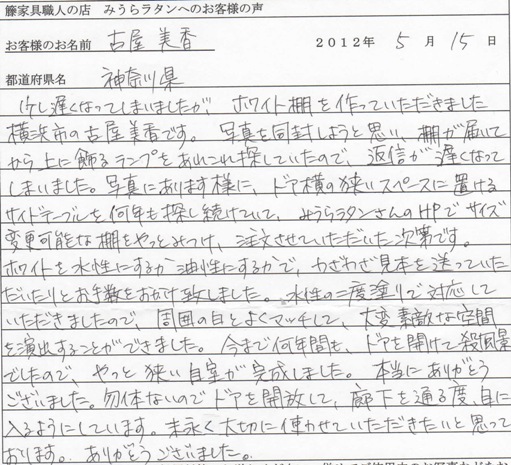 籐家具職人の店　みうらラタンへのお客様の声
お客様のお名前　古屋 美香　２０１２年 5 月 15 日
都道府県名　神奈川県
少し遅くなってしまいましたが、ホワイト棚を作っていただきました
横浜市の古屋美香です。写真を同封しようと思い、棚が届いて
から上に飾るランプをあれこれ探していたので、返信が遅くなって
しまいました。写真にあります様に、ドア横の狭いスペースに置ける
サイドテーブルを何年も探し続けていて、みうらラタンさんのHPでサイズ
変更可能な棚をやっとみつけ、注文させていただいた次第です。
ホワイトを水性にするか油性にするかで、わざわざ見本を送っていた
だいたりとお手数をおかけ致しました。水性の二度塗りで対応して
いただきましたので、周囲の白とよくマッチして、大変素敵な空間
を演出することができました。今まで何年間も、ドアを開けて殺風景
でしたので、やっと狭い自室が完成しました。本当にありがとう
ございました。勿体ないのでドアを開放して、廊下を通る度、目に
入るようにしています。末永く大切に使わせていただきたいと思って
おります。ありがとうございました。